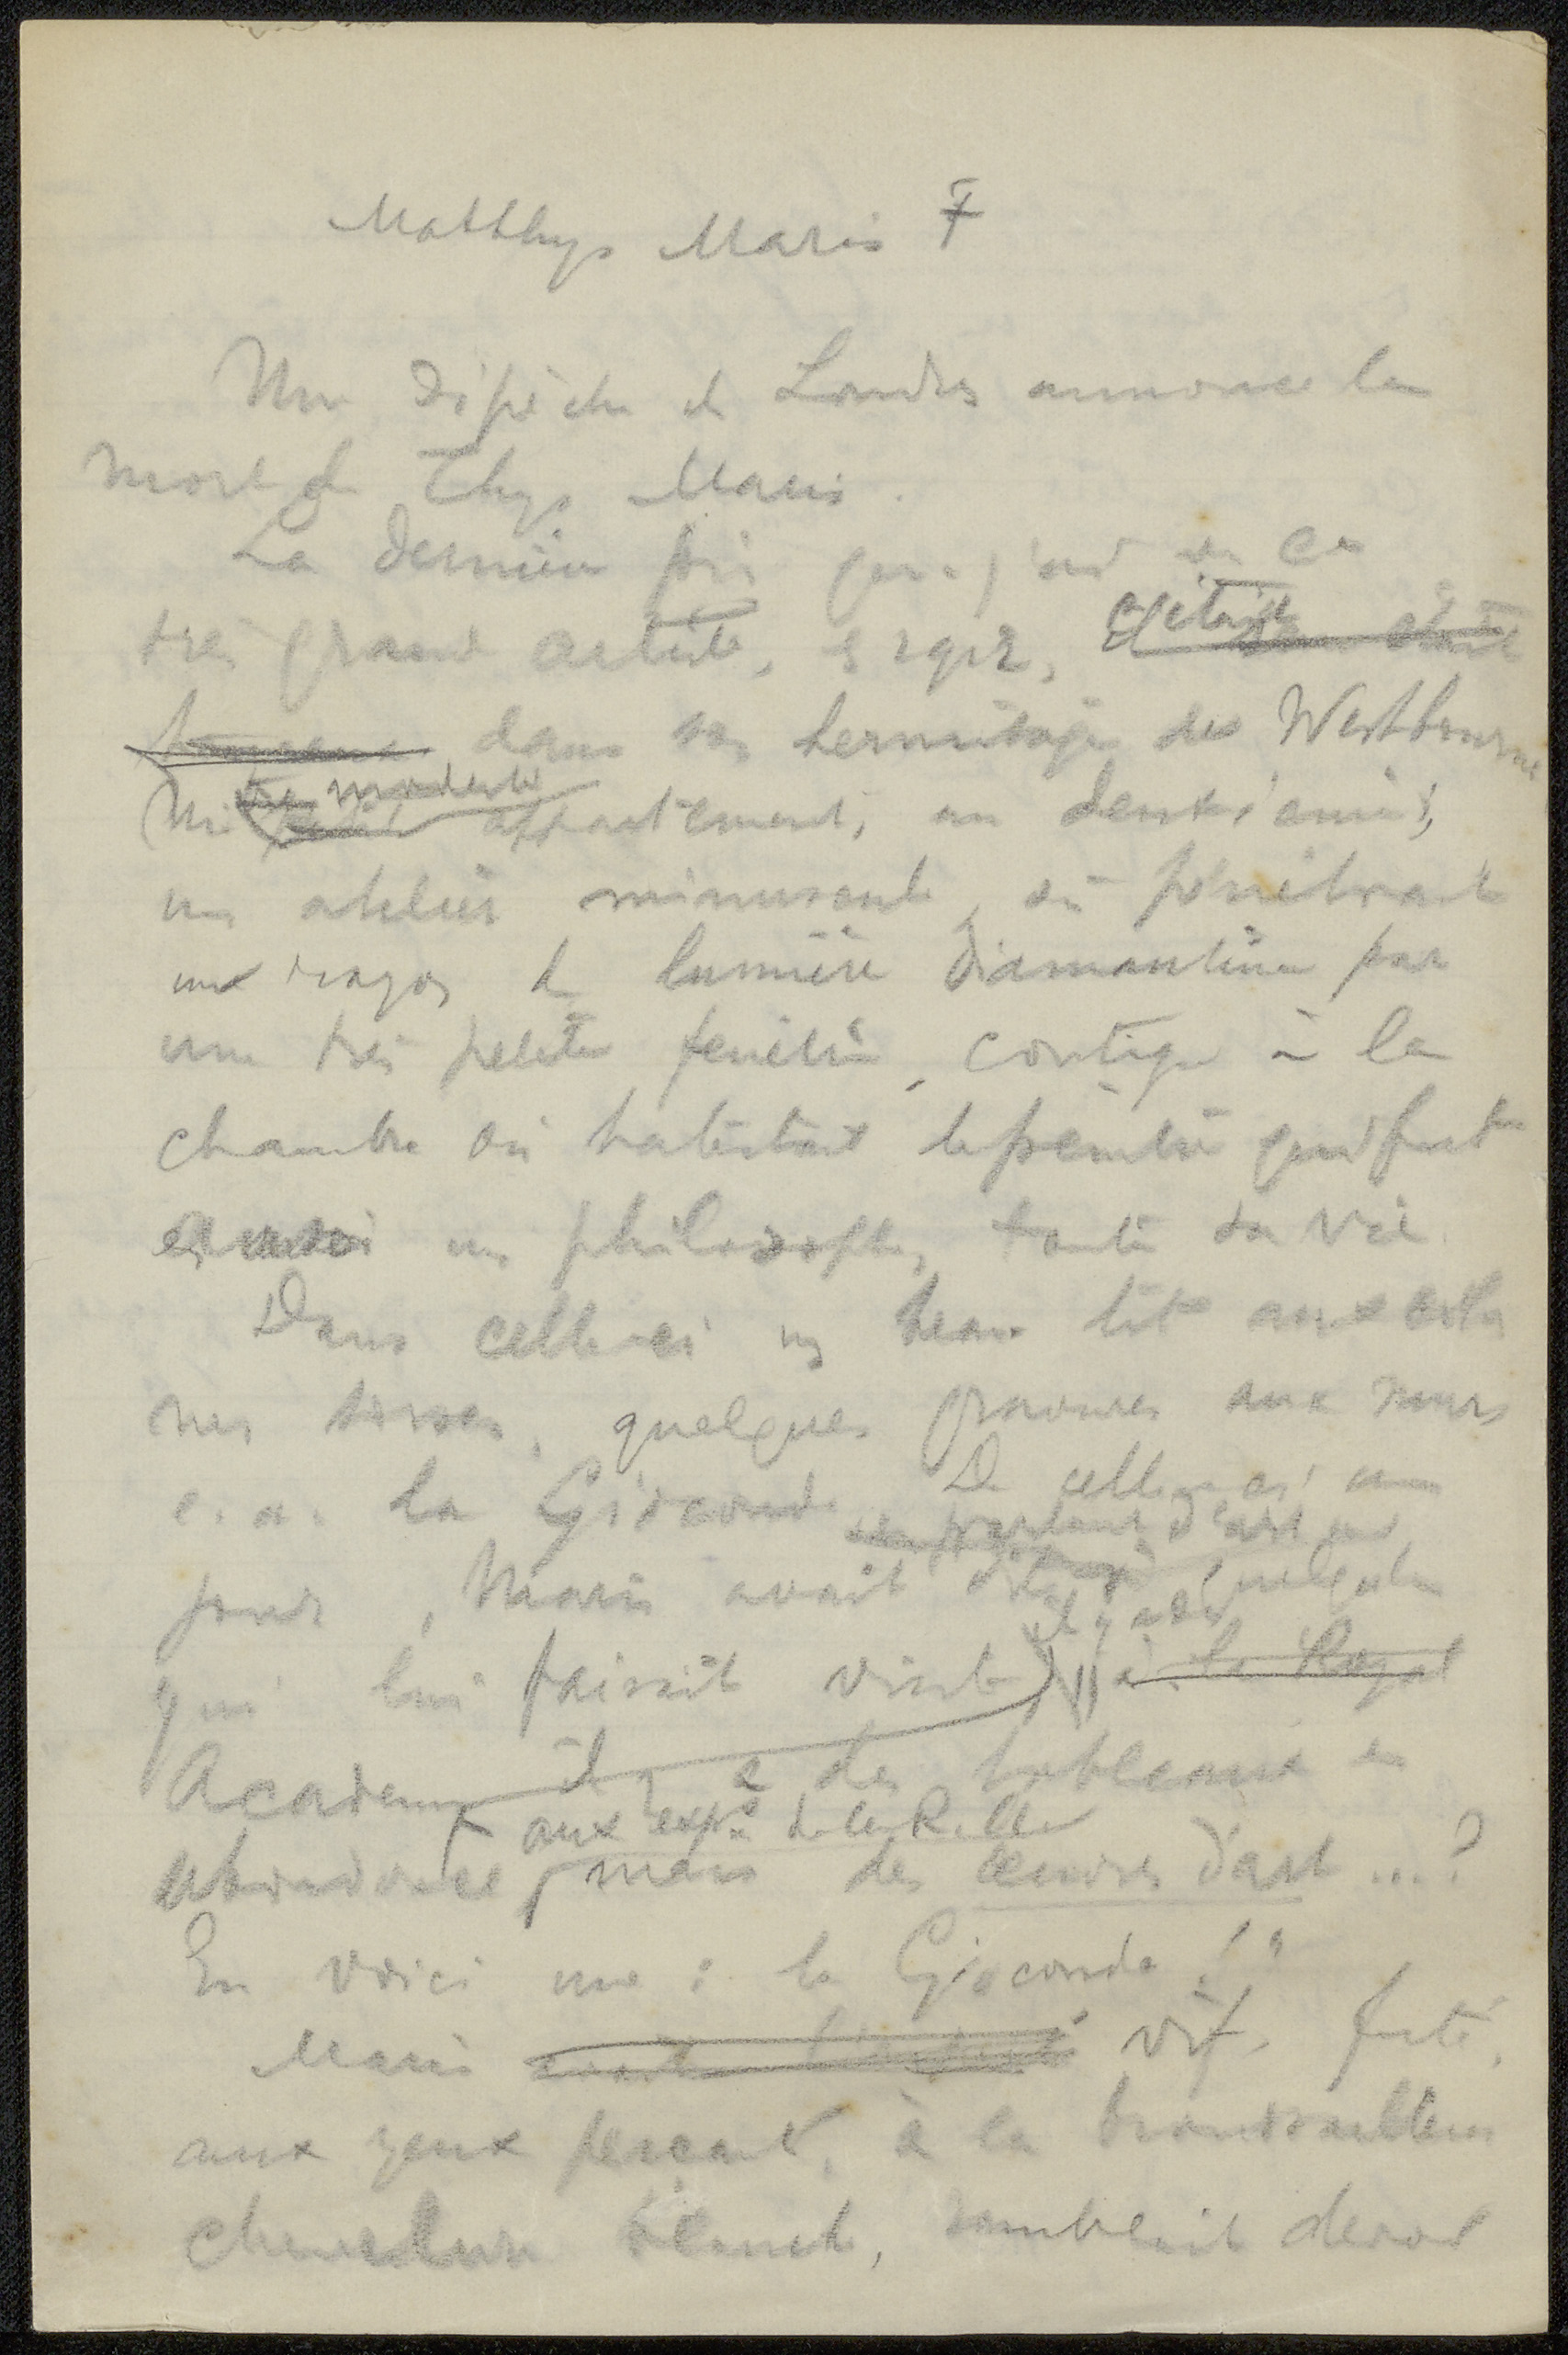 Matthys Maris †
Une dépêche de Londres annonce la
mort de Thys Maris.
La dernière fois que j'ai vu ce
très grand artiste, c'était
dans son hermitage de Westbourne
Un modeste appartement, au deuxième,
un atelier minuscule, où pénétrait
un rayon de lumière diamantine par
une très petite fenêtre, contigu à la
chambre où habitait le peintre qui fut
aussi un philosophe, toute sa vie.
Dans celle-ci un beau lit aux colon
nes torses, quelques gravures aux murs
e.a. la Gioconde. De celle-ci un
jour, Maris avait dit à quelqu'un
en parlant d'art
qui lui faisait visite à la Royal
Academy il y a des tableaux en
aux expos de
abondance, mais des œuvres d'art ...?
En voici une : la Gioconda !"
Maris vif, futé,
aux yeux perçants, à la broussailleuse
chevelure blanche, semblait devoir